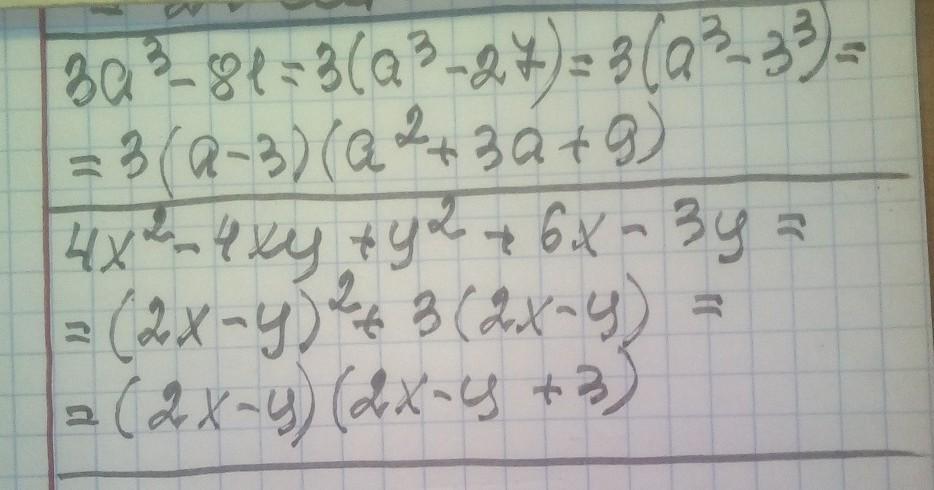 3a³ - 81 = 3(a³ - 27) = 3(a³ - 3³) =
= 3(a - 3)(a² + 3a + 9)
4x² - 4xy + y² + 6x - 3y =
= (2x - y)² + 3(2x - y) =
= (2x - y)(2x - y + 3)